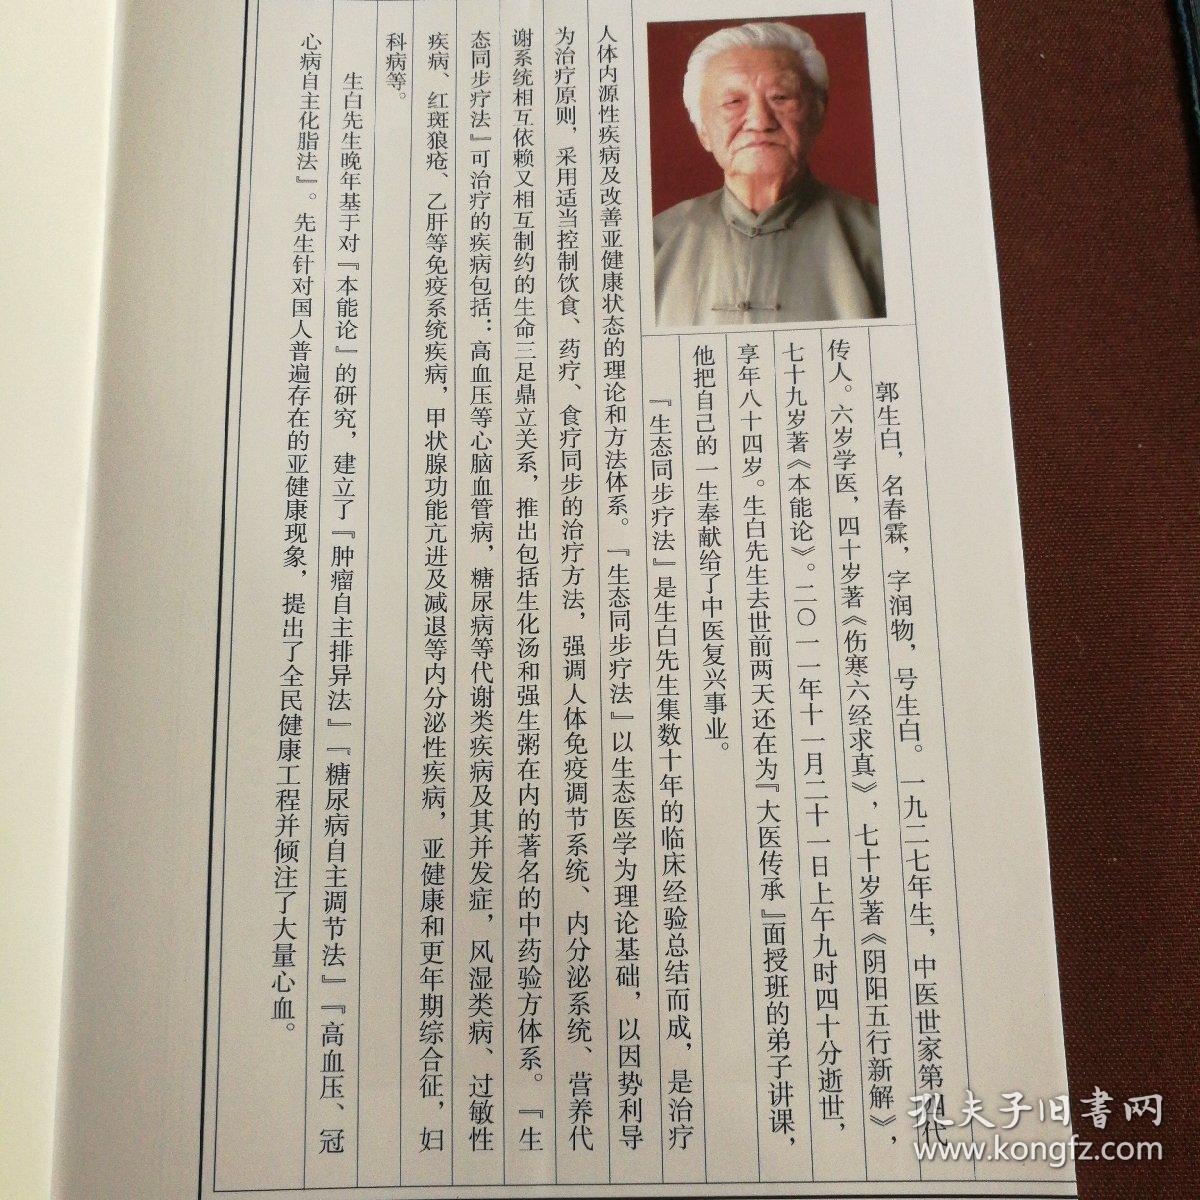 郭生白，名春霖，字润物，号生白。一九二七年生，中医世家第四代
传人。六岁学医，四十岁著《伤寒六经求真》，七十岁著《阴阳五行新解》，
七十九岁著《本能论》。二〇一一年十一月二十一日上午九时四十分逝世，
享年八十四岁。生白先生去世前两天还在为『大医传承』面授班的弟子讲课，
他把自己的一生奉献给了中医复兴事业。
『生态同步疗法』是生白先生集数十年的临床经验总结而成，是治疗
人体内源性疾病及改善亚健康状态的理论和方法体系。『生态同步疗法』以生态医学为理论基础，以因势利导
为治疗原则，采用适当控制饮食、药疗、食疗同步的治疗方法，强调人体免疫调节系统、内分泌系统、营养代
谢系统相互依赖又相互制约的生命三足鼎立关系，推出包括生化汤和强生粥在内的著名的中药验方体系。『生
态同步疗法』可治疗的疾病包括：高血压等心脑血管病，糖尿病等代谢类疾病及其并发症，风湿类病、过敏性
疾病、红斑狼疮、乙肝等免疫系统疾病，甲状腺功能亢进及减退等内分泌性疾病，亚健康和更年期综合征，妇
科病等。
生白先生晚年基于对『本能论』的研究，建立了『肿瘤自主排异法』『糖尿病自主调节法』『高血压、冠
心病自主化脂法』。先生针对国人普遍存在的亚健康现象，提出了全民健康工程并倾注了大量心血。
孔夫子旧书网
www.kongfz.com